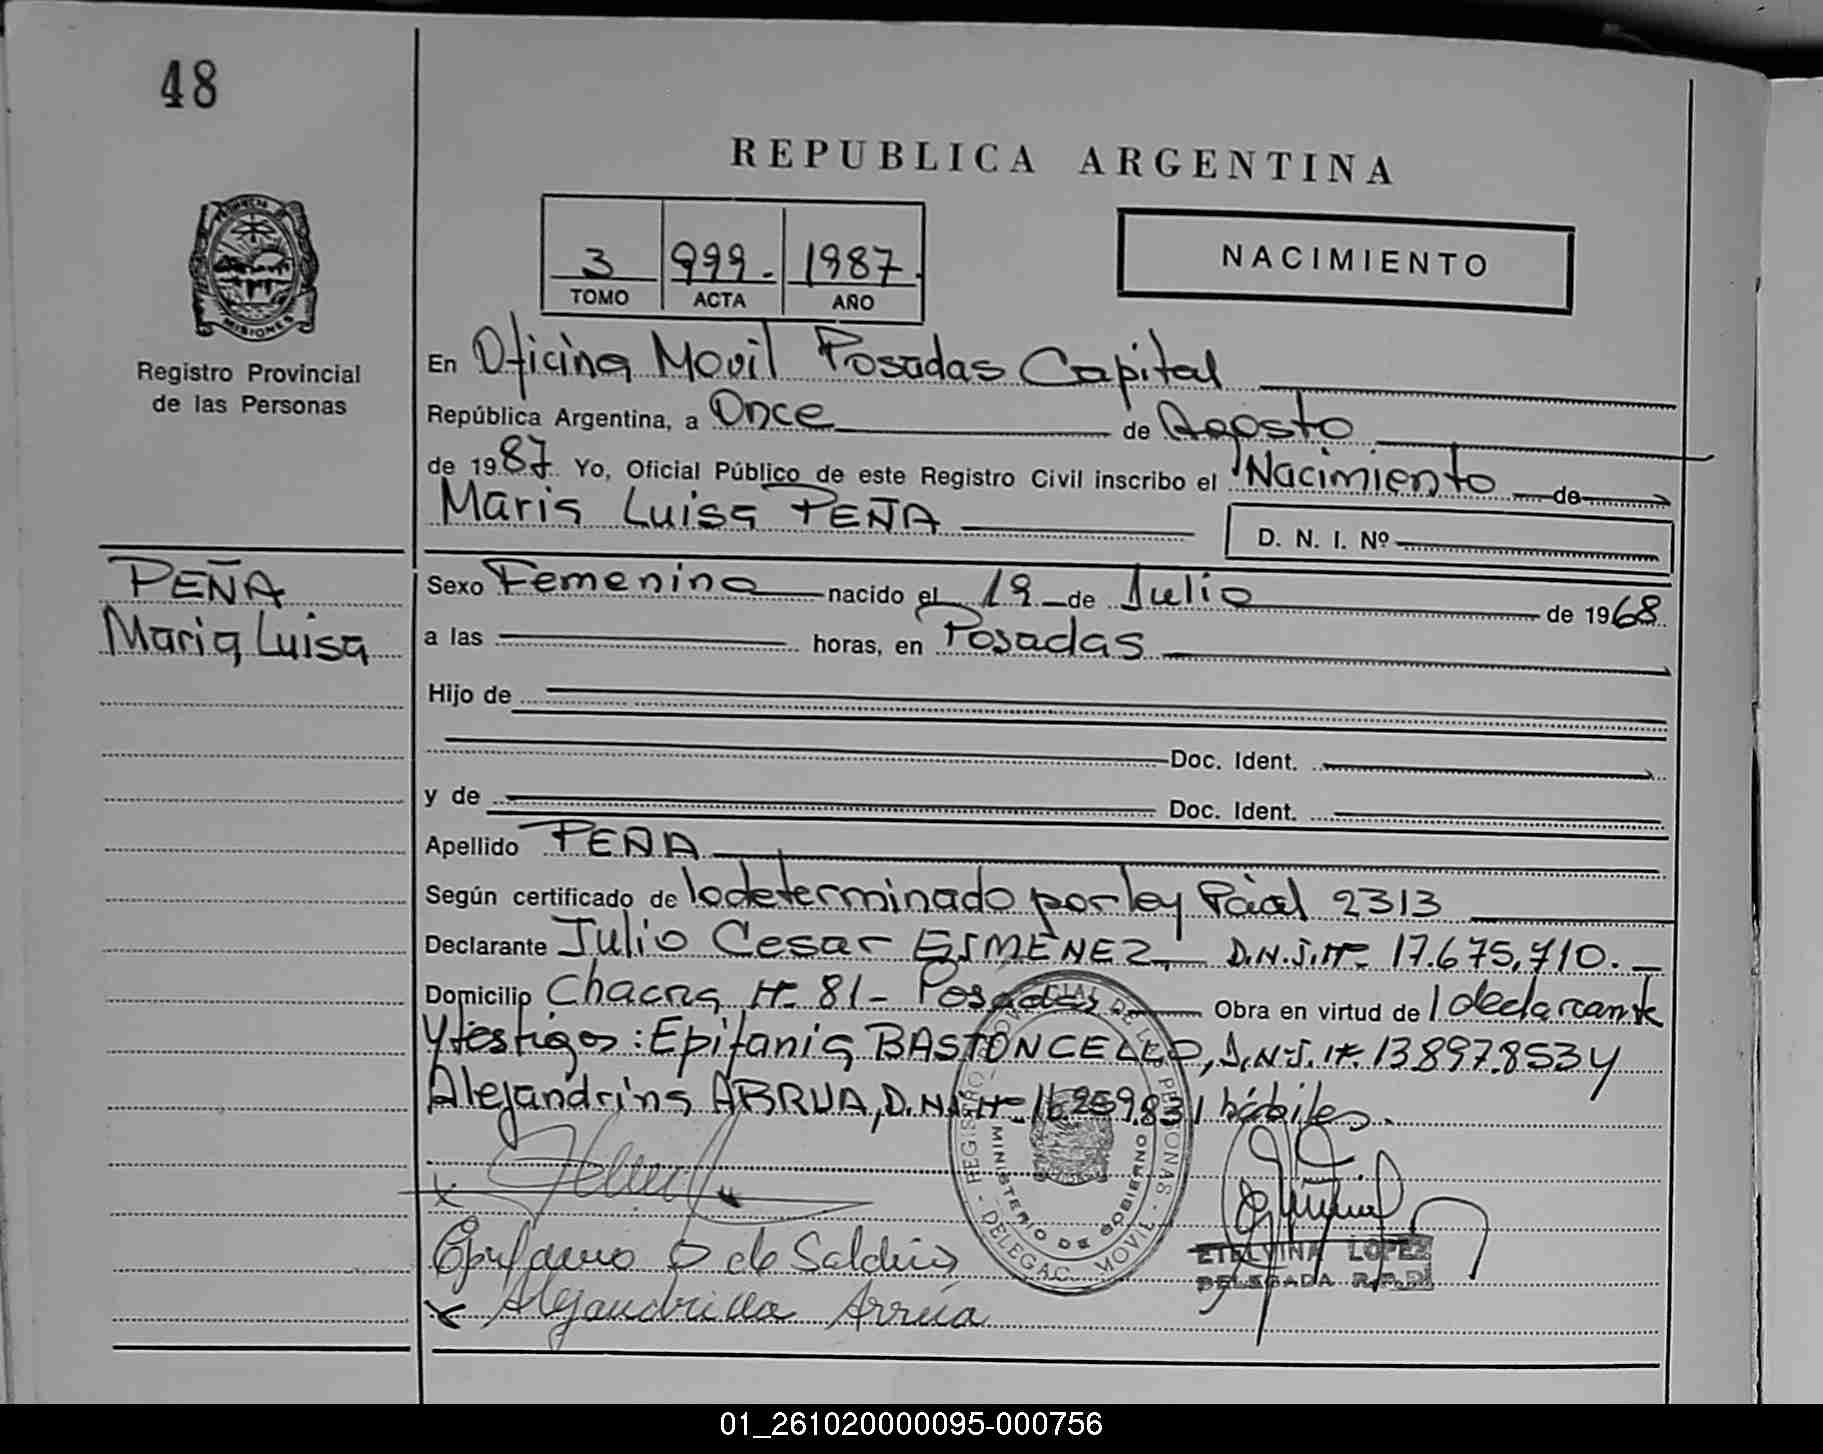 48
REPUBLICA ARGENTINA
3 999. 1987.
TOMO ACTA AÑO
NACIMIENTO
PROVINCIA DE MISIONES
Registro Provincial
de las Personas
En Oficina Movil Posadas Capital
República Argentina, a Once de Agosto
de 1987. Yo, Oficial Público de este Registro Civil inscribo el Nacimiento de
Maria Luisa PEÑA
D. N. I. Nº
PEÑA
Maria Luisa
Sexo Femenino nacido el 19 de Julio de 1968.
a las horas, en Posadas
Hijo de
Doc. Ident.
y de Doc. Ident.
Apellido PEÑA
Según certificado de lo determinado por ley Pcial 2313
Declarante Julio Cesar GIMENEZ, D.N.I. Nº 17.675.710.
Domicilio Chacra Nº 81 - Posadas Obra en virtud de l declarante
y testigos: Epifania BASTONCELLO, D.N.I. Nº. 13.897.853 y
Alejandrina ARRUA, D.N.I. Nº 16.259.831 hábiles.
REGISTRO PROVINCIAL DE LAS PERSONAS - DELEGAC. MOVIL -
MINISTERIO DE GOBIERNO
ETELVINA LOPEZ
DELEGADA R.P.P.
de Saldiva
x Alejandrina Arrúa
01_261020000095-000756